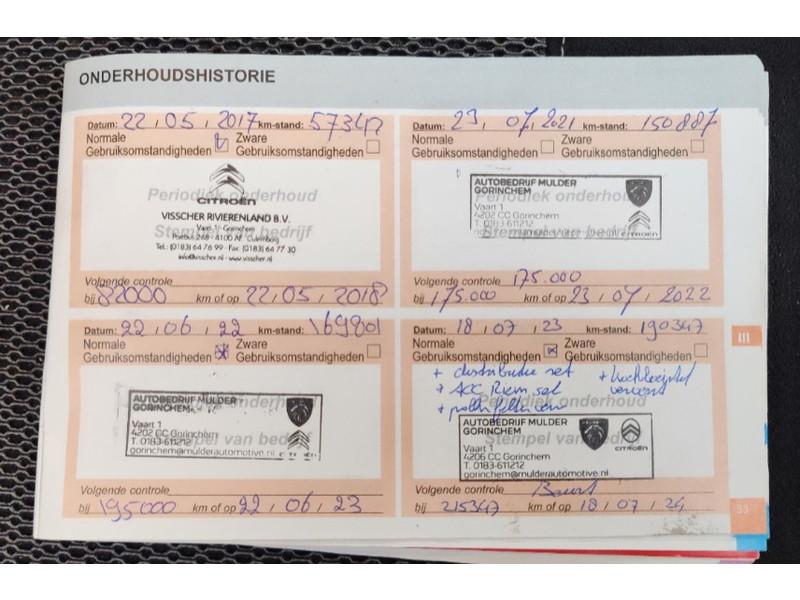 ONDERHOUDSHISTORIE
Datum: 22, 05, 2017 km-stand: 57347
Normale Gebruiksomstandigheden Zware Gebruiksomstandigheden
Periodiek onderhoud
CITROËN
VISSCHER RIVIERENLAND B.V.
Stempel van bedrijf
Postbus 248 - 4100 AE Culemborg
Tel.: (0183) 64 76 99 - Fax: (0183) 64 77 30
info@visscher.nl - www.visscher.nl
Volgende controle
bij 82000 km of op 22, 05, 2018
Datum: 23, 07, 2021 km-stand: 150887
Normale Gebruiksomstandigheden Zware Gebruiksomstandigheden
Periodiek onderhoud
AUTOBEDRIJF MULDER
GORINCHEM
Vaart 1
4202 CC Gorinchem
T. 0183-611212
Stempel van bedrijf
CITROËN
Volgende controle 175.000
bij 175.000 km of op 23, 07, 2022
Datum: 22, 06, 22 km-stand: 169801
Normale Gebruiksomstandigheden Zware Gebruiksomstandigheden
Periodiek onderhoud
AUTOBEDRIJF MULDER
GORINCHEM
Vaart 1
4202 CC Gorinchem
T. 0183-611212
gorinchem@mulderautomotive.nl
Stempel van bedrijf
Volgende controle
bij 195000 km of op 22, 06, 23
Datum: 18, 07, 23 km-stand: 190347
Normale Gebruiksomstandigheden Zware Gebruiksomstandigheden
+ distributie set
+ ACC Riem set
+ pollenfilter
Periodiek onderhoud
AUTOBEDRIJF MULDER
GORINCHEM
Vaart 1
4206 CC Gorinchem
T. 0183-611212
gorinchem@mulderautomotive.nl
CITROËN
Stempel van bedrijf
Volgende controle Beurt
bij 215347 km of op 18, 07, 24
III
33